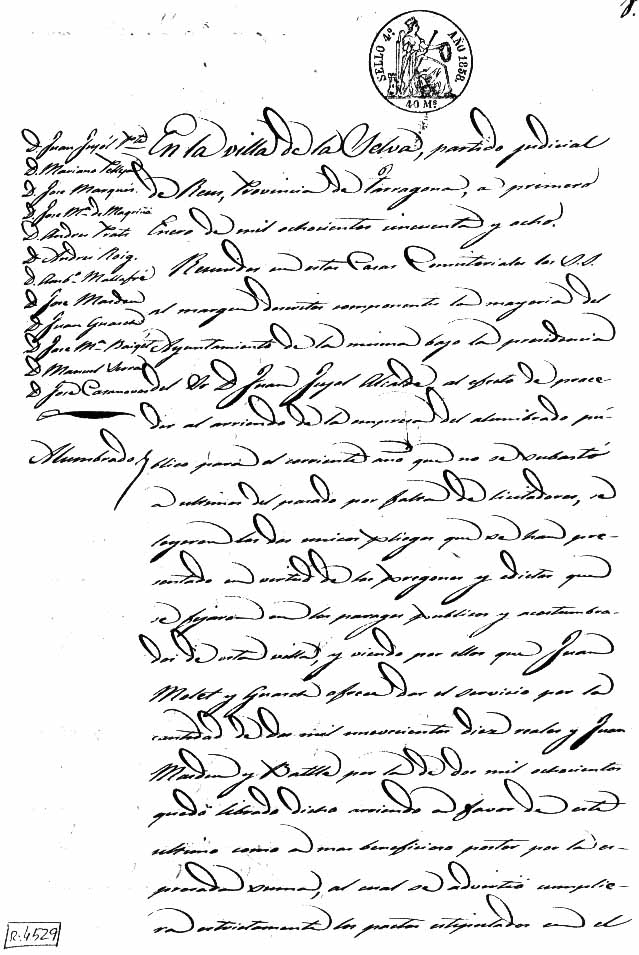 8.
SELLO 4º AÑO 1858.
40 Ms
D. Juan Pte
D. Mariano
D. Jose Marques
D. Jose Mª de Magriñá
D. Andres Prats
D. Andres Roig.
D. Ambº Mallafré
D. Jose Masdeu
D. Juan Guasch
D. Jose Mª Baiget
D. Manuel
D. Jose Casanovas
Alumbrado
En la villa de la Selva, partido judicial
de Reus, Provincia de Tarragona, a primero
Enero de mil ochocientos cincuenta y ocho.
Reunidos en estas Casas Consistoriales los S.S.
al margen descritos componente la mayoria del
Ayuntamiento de la misma bajo la presidencia
del Sr D. Juan Alcalde, al efecto de proce-
der al arriendo de la empresa del alumbrado pú-
blico para el corriente año que no se subastó
a ultimos del pasado por falta de licitadores, se
leyeron los dos unicos pliegos que se han pre-
sentado en virtud de los pregones y edictos que
se fijaron en los parages publicos y acostumbra-
dos de esta villa, y viendo por ellos que Juan
Molet y Guasch ofrece dar el servicio por la
cantidad de dos mil novecientos diez reales y Juan
Masdeu y Batlle por la de dos mil ochocientos
quedó librado dicho arriendo a favor de este
ultimo como a mas beneficioso postor por la es-
presada suma, al cual se advirtió cumplie-
ra estrictamente los pactos estipulados en el
R-4529